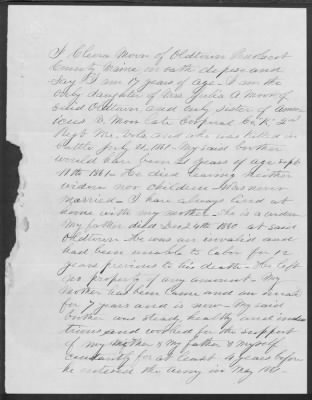 I Clera Moor of Oldtown Penobscot
County Maine on oath depose and
say I am 17 years of age - I am the
only daughter of Mrs Julia A Moor of
said Oldtown and only sister of Amer
icus V. Moor late Corporal Co. K. 2nd
Regt Me. Vols and who was killed in
battle July 21, 1861 - My said brother
would have been 21 years of age Sept
18th 1861 - He died leaving neither
widow nor children Was never
Married - I have always lived at
home with my mother - She is a widow
My father died Dec 24th 1860 at said
Oldtown - He was an invalid and
had been unable to labor for 12
years previous to his death - He left
no property of any amount - My
Mother has been lame and an invalid
for 7 years and is now - My said
brother was steady healthy and indus
trious and worked for the support
of my Mother & My father & Myself
constantly for at least 4 years before
he entered the Army in May 1861 -